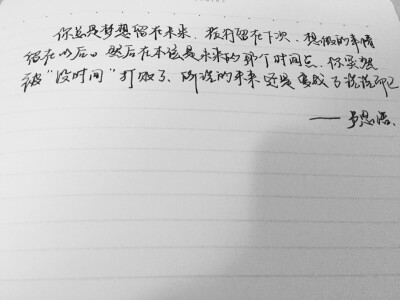 你总是梦想留在未来，旅行留在下次，想做的事情
留在以后。然后在本该是未来的那个时间点，你突然
被“没时间”打败了，所谓的未来还是变成了说说而已
——卢思浩